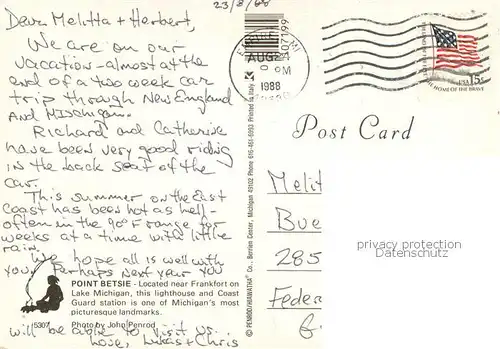 23/8/88
Dear Melitta + Herbert,
We are on our
vacation - almost at the
end of a two week car
trip through New England
and Michigan.
Richard and Catherine
have been very good riding
in the back seat of the
car.
This summer on the East
Coast has been hot as hell -
often in the 90°F range for
weeks at a time with little
rain.
We hope all is well with
you. Perhaps next year you
POINT BETSIE - Located near Frankfort on
Lake Michigan, this lighthouse and Coast
Guard station is one of Michigan's most
picturesque landmarks.
5307 Photo by John Penrod
will be able to visit us.
Love, Lukas + Chris
© PENROD/HIAWATHA Co., Berrien Center, Michigan 49102 Phone 616-461-6993 Printed in Italy
07199
AUG 24
PM
1988
USA 15c
THE HOME OF THE BRAVE
Post Card
Melit
Bue
285
Federa
privacy protection
Datenschutz